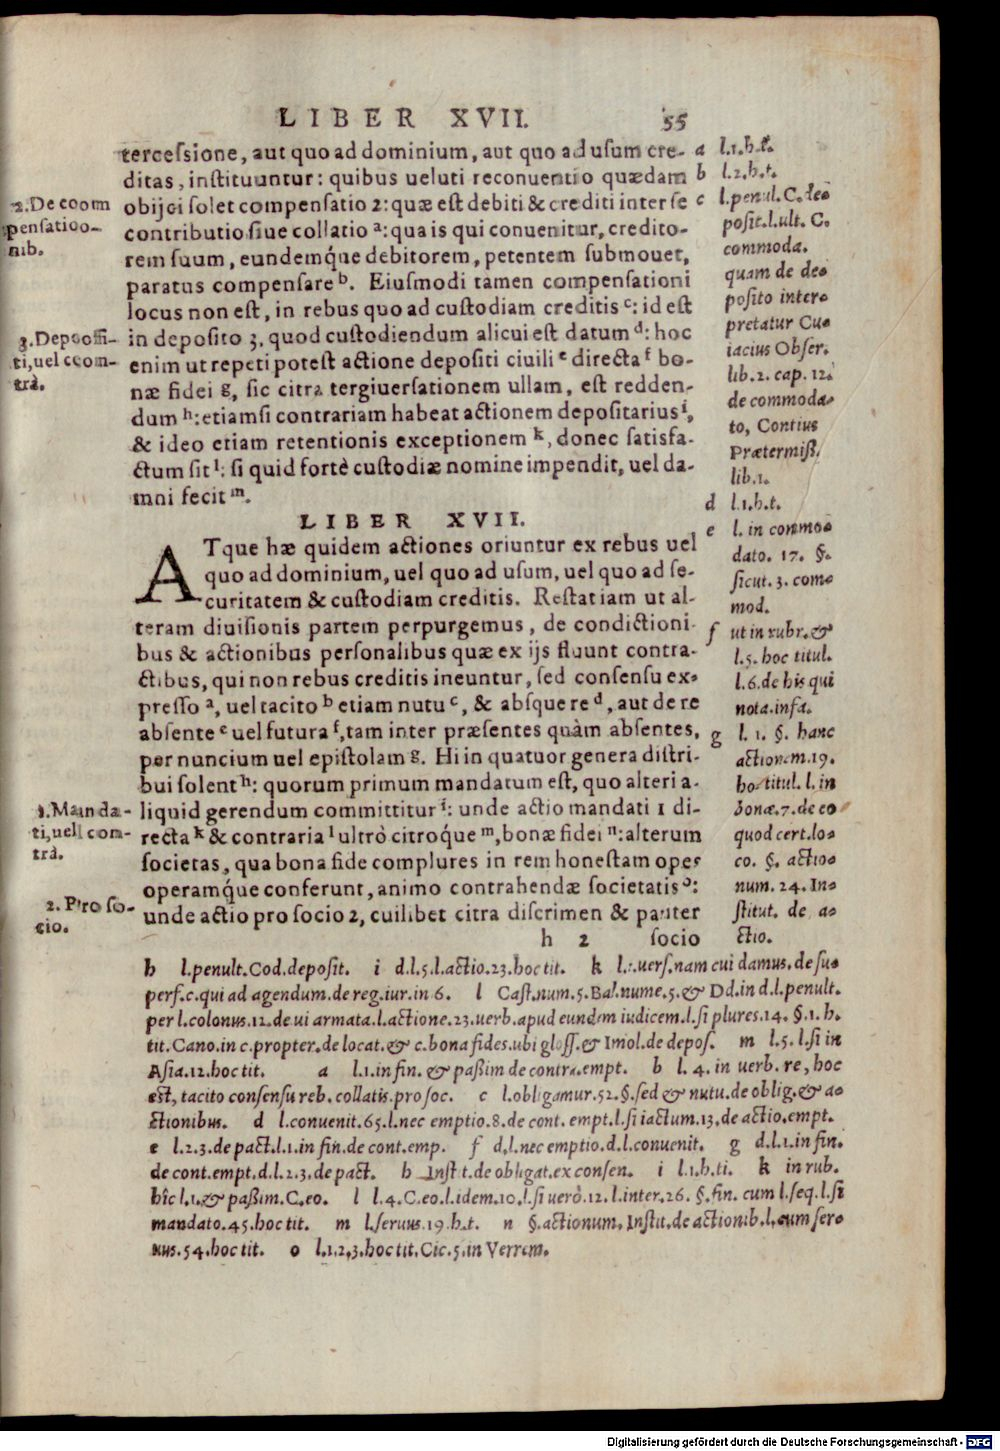 LIBER XVII. 55
tercessione, aut quo ad dominium, aut quo ad usum cre-
ditas, instituuntur: quibus ueluti reconuentio quædam
obijci solet compensatio 2: quæ est debiti & crediti inter se
contributio siue collatio ᵃ: qua is qui conuenitur, credito-
rem suum, eundemq́ue debitorem, petentem submouet,
paratus compensare ᵇ. Eiusmodi tamen compensationi
locus non est, in rebus quo ad custodiam creditis ᶜ: id est
in deposito 3, quod custodiendum alicui est datum ᵈ: hoc
enim ut repeti potest actione depositi ciuili ᵉ directa ᶠ bo-
næ fidei g, sic citra tergiuersationem ullam, est redden-
dum ʰ: etiamsi contrariam habeat actionem depositarius ⁱ,
& ideo etiam retentionis exceptionem ᵏ, donec satisfa-
ctum sit ˡ: si quid fortè custodiæ nomine impendit, uel da-
mni fecit ᵐ.
2. De com
pensatio-
nib.
3. Deposi-
ti, uel com-
trà.
a l.1.h.t.
b l.2.h.t.
c l.penul.C.de-
posit.l.ult. C.
commoda.
quam de de-
posito inter-
pretatur Cu-
iacius Obser.
lib.2. cap. 12.
de commoda-
to, Contius
Prætermiss.
lib.1.
d l.1.h.t.
e l. in commo-
dato. 17. §.
sicut. 3. com-
mod.
f ut in rubr. &
l.5. hoc titul.
l.6.de his qui
nota.infa.
g l. 1. §. hanc
actionem.19.
ho. titul. l. in
bonæ.7.de eo
quod cert.lo-
co. §. actio-
num. 24. In-
stitut. de a-
ctio.
LIBER XVII.
ATque hæ quidem actiones oriuntur ex rebus uel
quo ad dominium, uel quo ad usum, uel quo ad se-
curitatem & custodiam creditis. Restat iam ut al-
teram diuisionis partem perpurgemus, de condictioni-
bus & actionibus personalibus quæ ex ijs fluunt contra-
ctibus, qui non rebus creditis ineuntur, sed consensu ex-
presso ᵃ, uel tacito ᵇ etiam nutu ᶜ, & absque re ᵈ, aut de re
absente ᵉ uel futura ᶠ, tam inter præsentes quàm absentes,
per nuncium uel epistolam g. Hi in quatuor genera distri-
bui solent ʰ: quorum primum mandatum est, quo alteri a-
liquid gerendum committitur ⁱ: unde actio mandati 1 di-
recta ᵏ & contraria ˡ ultrò citroq́ue ᵐ, bonæ fidei ⁿ: alterum
societas, qua bona fide complures in rem honestam opes
operamq́ue conferunt, animo contrahendæ societatis ᵒ:
unde actio pro socio 2, cuilibet citra discrimen & pariter
h 2 socio
1. Manda-
ti, uel con-
trà.
2. Pro so-
cio.
h l.penult.Cod.deposit. i d.l.5.l.actio.23.hoc tit. k l.1.uers.nam cui damus.de su-
perf.c.qui ad agendum.de reg.iur.in 6. l Cast.num.5.Bal.nume.5.& Dd.in d.l.penult.
per l.colonus.12.de ui armata.l.actione.23.uerb.apud eundem iudicem.l.si plures.14. §.1.h.
tit.Cano.in c.propter.de locat.& c.bona fides.ubi gloss.& Imol.de depos. m l.5.l.si in
Asia.12.hoc tit. a l.1.in fin. & passim de contra.empt. b l.4. in uerb. re, hoc
est, tacito consensu reb. collatis.pro soc. c l.obligamur.52.§.sed & nutu.de oblig.& a-
ctionibus. d l.conuenit.65.l.nec emptio.8.de cont. empt.l.si iactum.13.de actio.empt.
e l.2.3.de pact.l.1.in fin.de cont.emp. f d.l.nec emptio.d.l.conuenit. g d.l.1.in fin.
de cont.empt.d.l.2.3.de pact. h Instit.de obligat.ex consen. i l.1.h.ti. k in rub.
hîc l.1.& passim.C.eo. l l.4.C.eo.l.idem.10.l.si uerò.12.l.inter.26.§.fin. cum l.seq.l.si
mandato.45.hoc tit. m l.seruus.19.h.t. n §.actionum.Instit.de actionib.l.cum ser-
uus.54.hoc tit. o l.1.2.3.hoc tit.Cic.5.in Verrem.
Digitalisierung gefördert durch die Deutsche Forschungsgemeinschaft - DFG